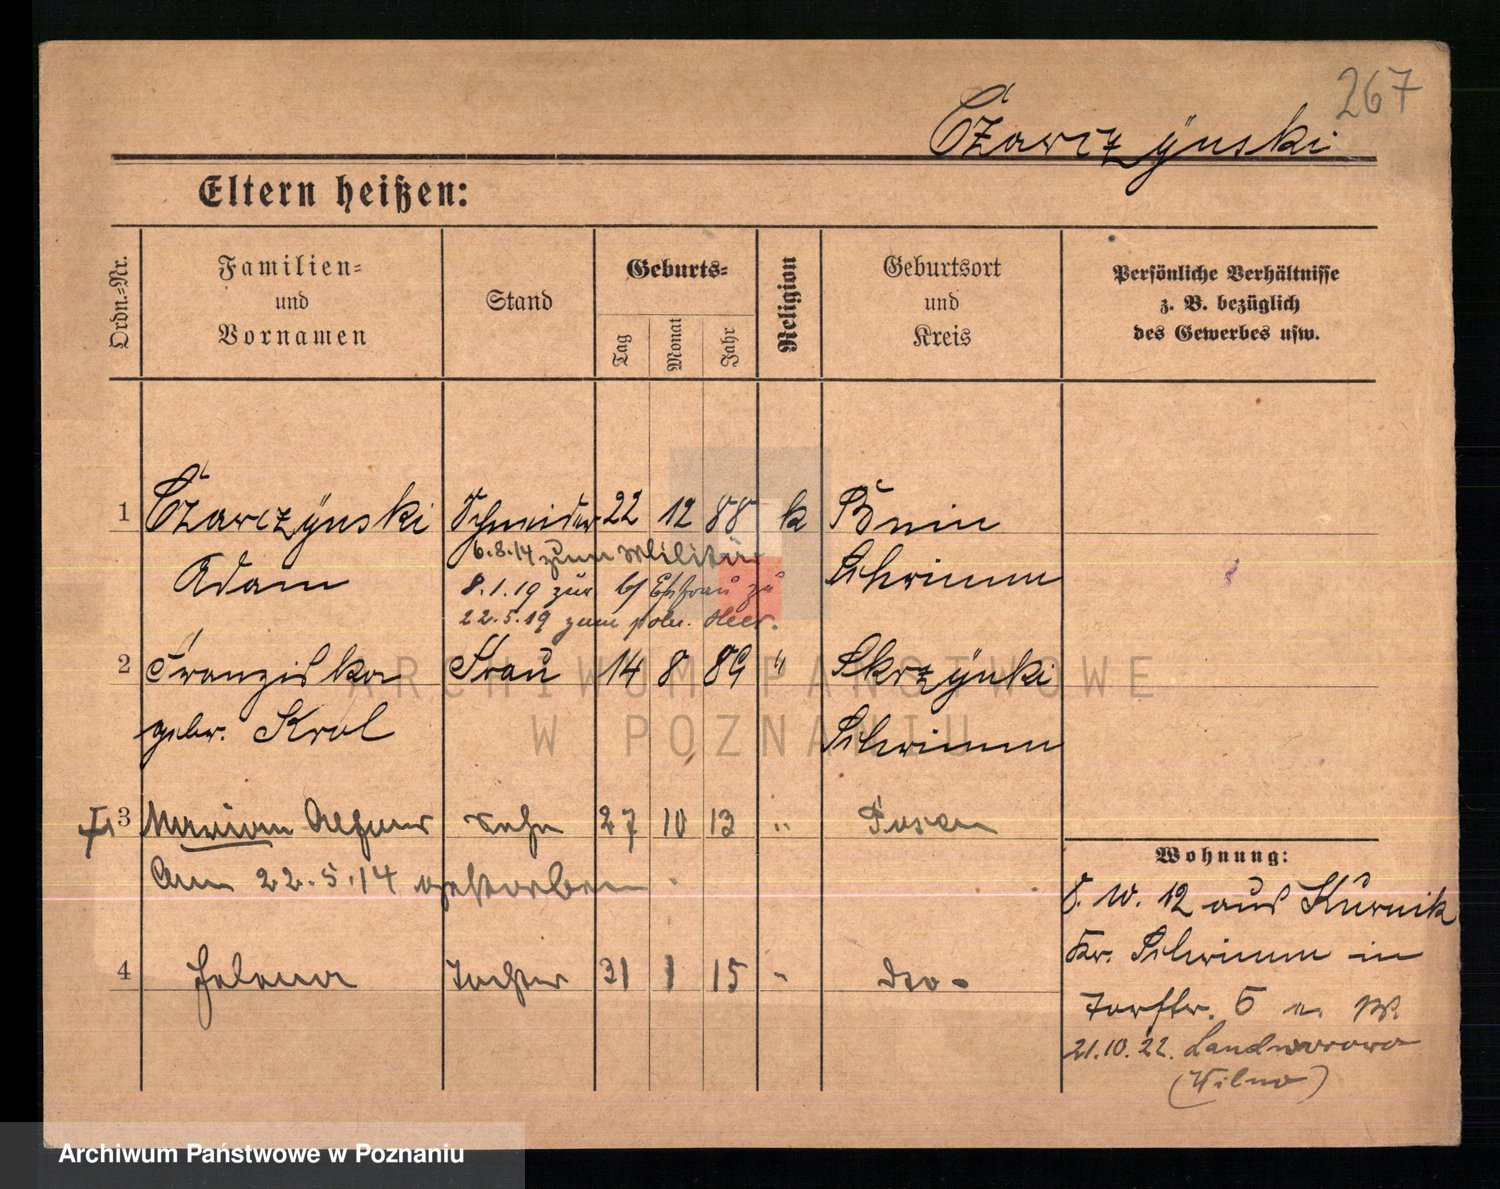 267
Czarczÿnski
Eltern heißen:
Ordn.-Nr.
Familien-
und
Vornamen
Stand
Geburts-
Tag
Monat
Jahr
Religion
Geburtsort
und
Kreis
Persönliche Verhältnisse
z. B. bezüglich
des Gewerbes usw.
1 Czarczÿnski Schneider 22 12 88 k Bnin
Adam Schrimm
6.8.14 zum Militär
8.1.19 zur Ehefrau zu
22.5.19 zum poln. Heer.
2 Franziska Frau 14 8 89 " Skrzÿnki
gebr. Krol Schrimm
3 Marian Sohn 27 10 13 " Posen
Am 22.5.14 gestorben.
4 Helena Tochter 31 1 15 " dto.
Wohnung:
8. 10. 12 aus Kurnik
Kr. Schrimm in
Torfstr. 5
21.10.22. Landwarowo
(Wilno)
ARCHIWUM PAŃSTWOWE
W POZNANIU
Archiwum Państwowe w Poznaniu